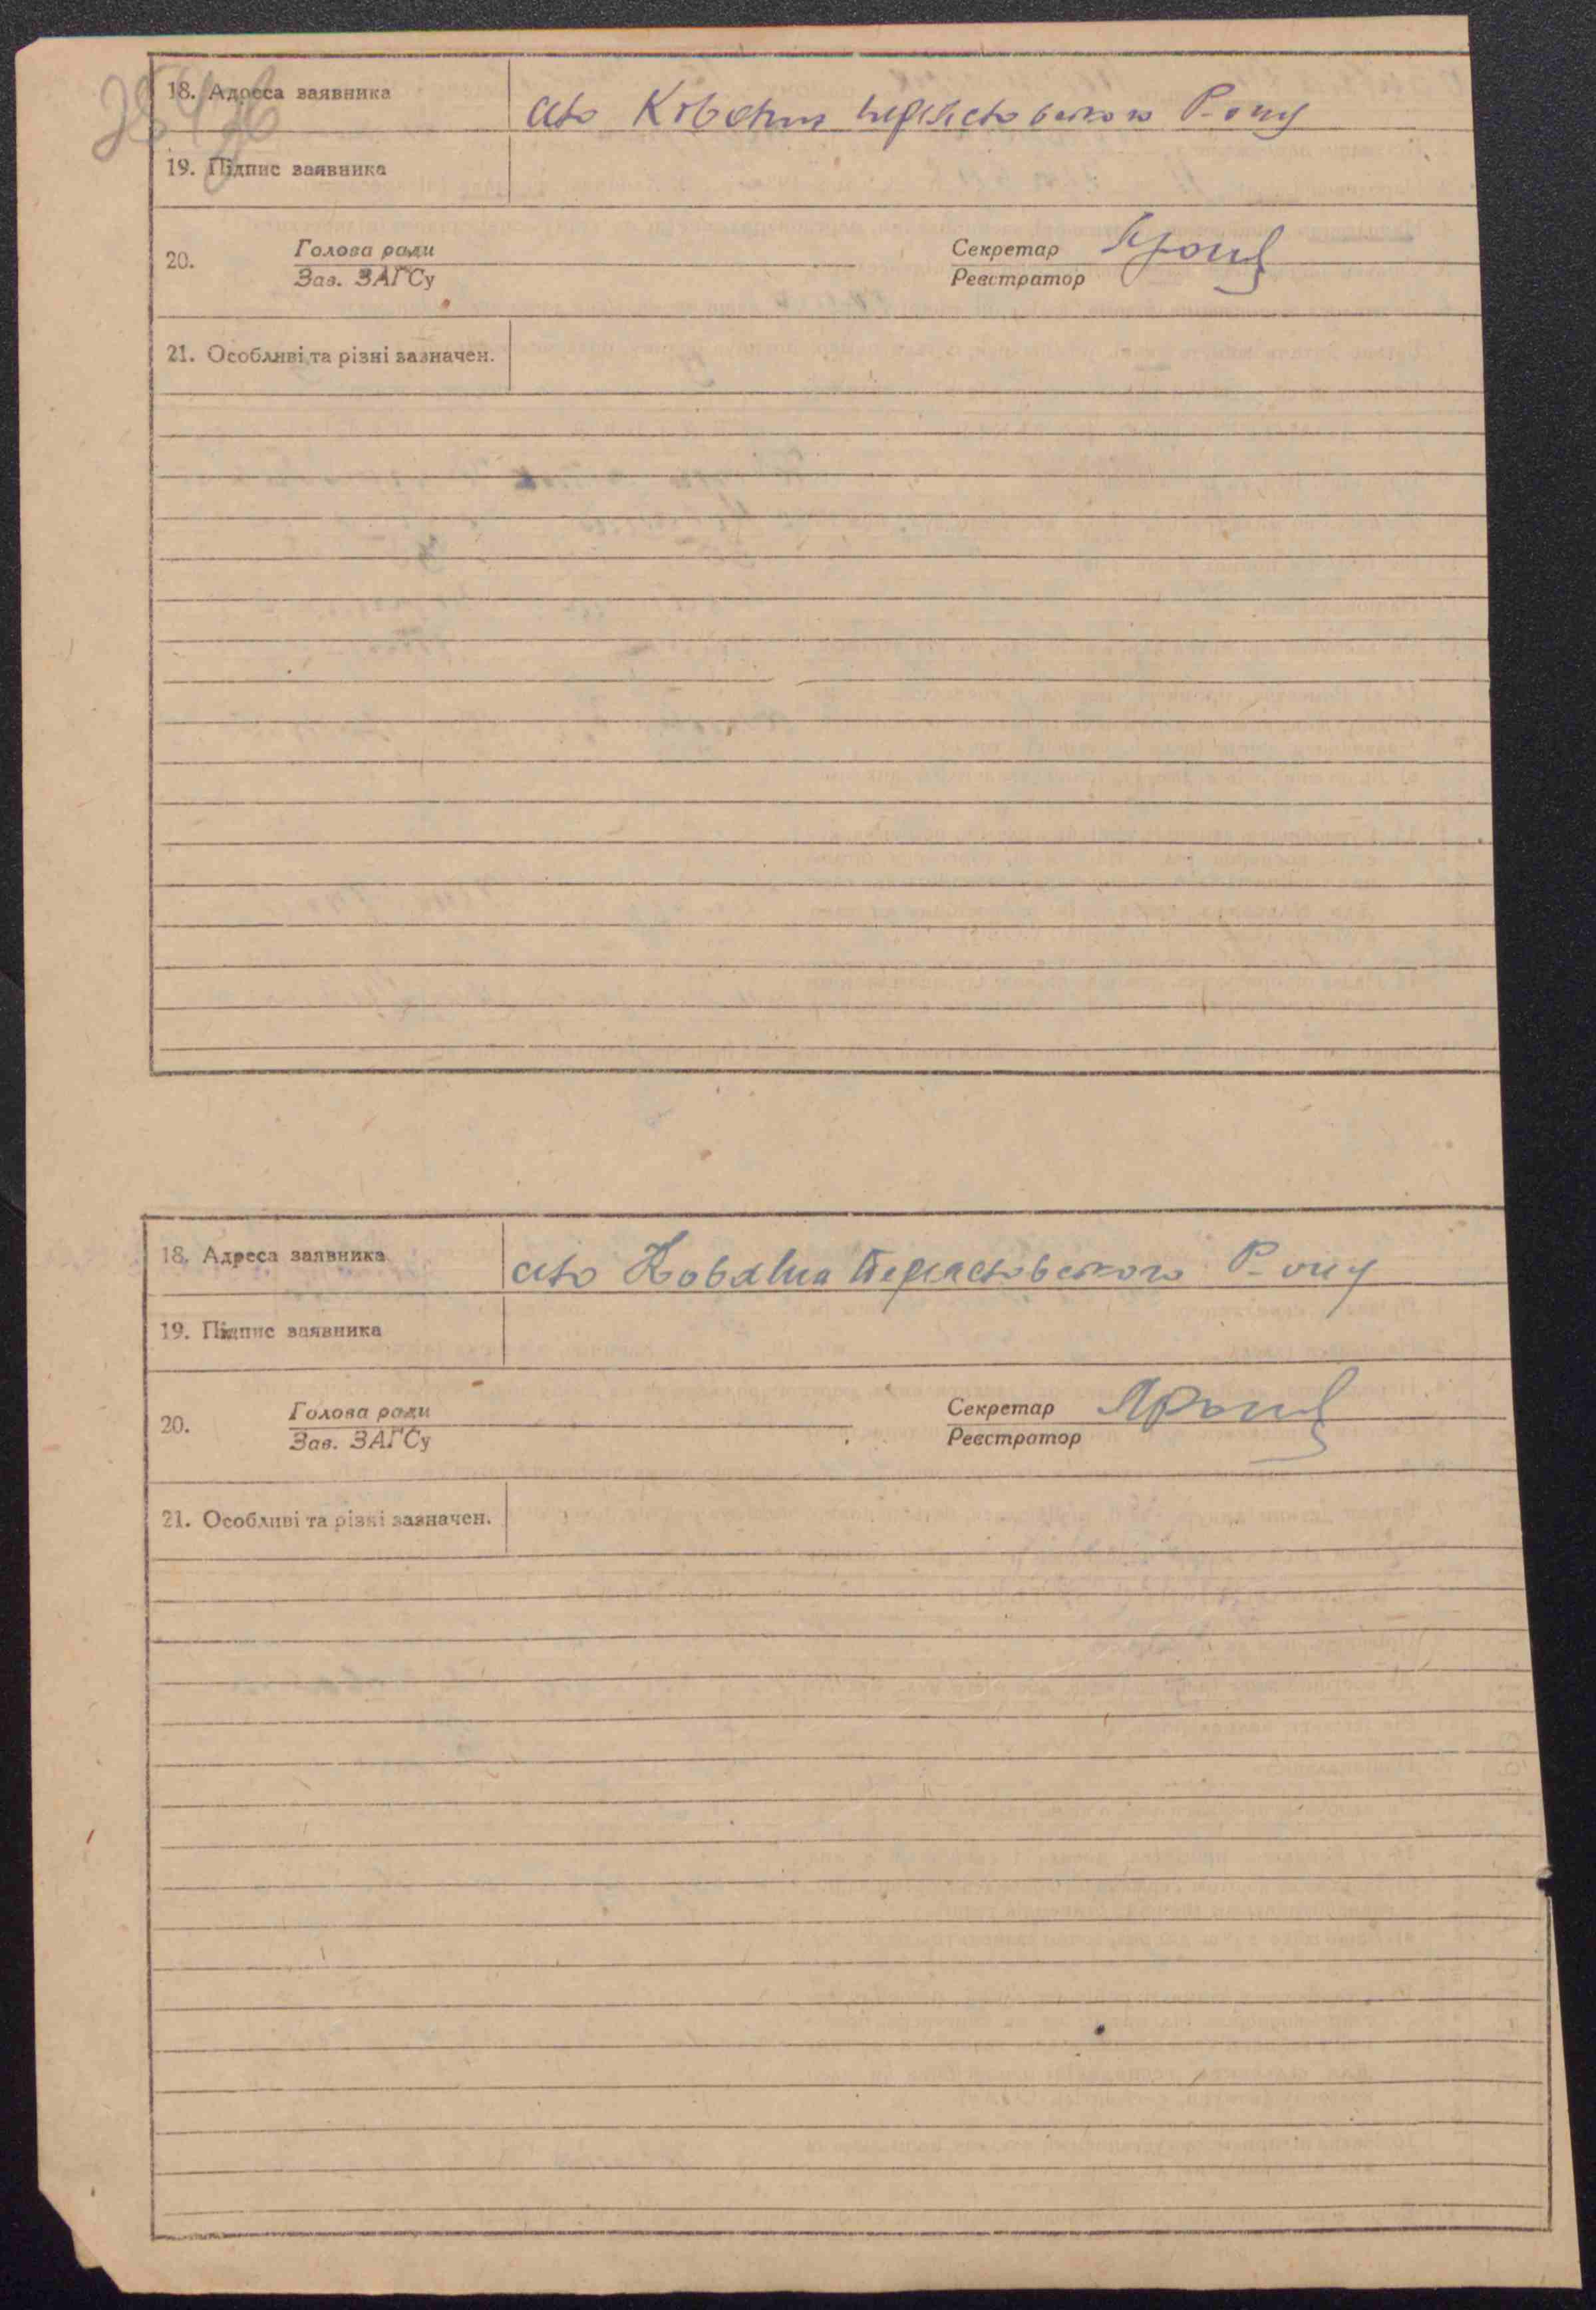 18. Адреса заявника село Ковалин Переяславського Р-ону
19. Підпис заявника
20. Голова ради Секретар
Зав. ЗАГСу Реєстратор
21. Особливі та різні зазначен.
18. Адреса заявника село Ковалин Переяславського Р-ону
19. Підпис заявника
20. Голова ради Секретар
Зав. ЗАГСу Реєстратор
21. Особливі та різні зазначен.